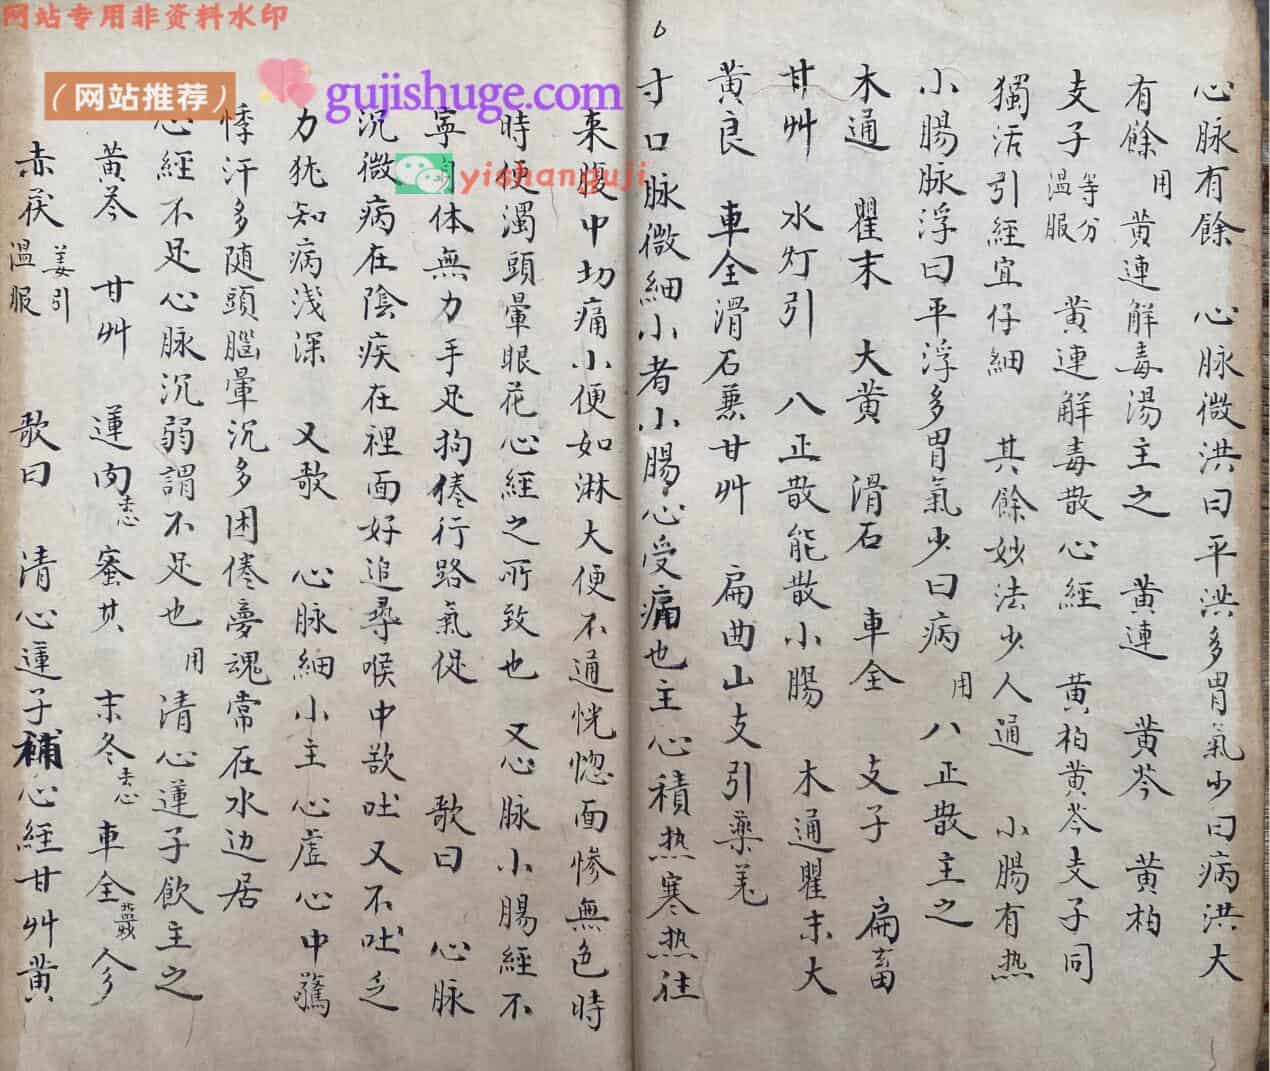 网站专用非资料水印
（网站推荐）
gujishuge.com
yishanguji
6
心脉有餘　心脉微洪曰平洪多胃氣少曰病洪大
有餘用黄連解毒湯主之　黄連　黄芩　黄柏
支子等分温服　黄連解毒散心經　黄柏黄芩支子同
獨活引經宜仔細　其餘妙法少人通　小腸有热
小腸脉浮曰平浮多胃氣少曰病用八正散主之
木通　瞿末　大黄　滑石　車全　支子　扁畜
甘艸　水灯引　八正散能散小腸　木通瞿末大
黄良　車全滑石兼甘艸　扁曲山支引藥羌
寸口脉微細小者小腸心受痛也主心積热寒热往
来腹中切痛小便如淋大便不通恍惚面慘無色時
時便濁頭暈眼花心經之所致也　又心脉小腸經不
寧　体無力手足拘倦行路氣促　歌曰　心脉
沉微病在陰疾在裡面好追尋喉中欲吐又不吐乏
力犹知病浅深　又歌　心脉細小主心虚心中驚
悸汗多随頭腦暈沉多困倦夢魂常在水边居
心經不足心脉沉弱謂不足也　用清心蓮子飲主之
黄芩　甘艸　蓮肉去心　蜜芪　末冬去心　車全　今
赤茯　姜引温服　歌曰　清心蓮子補心經甘艸黄